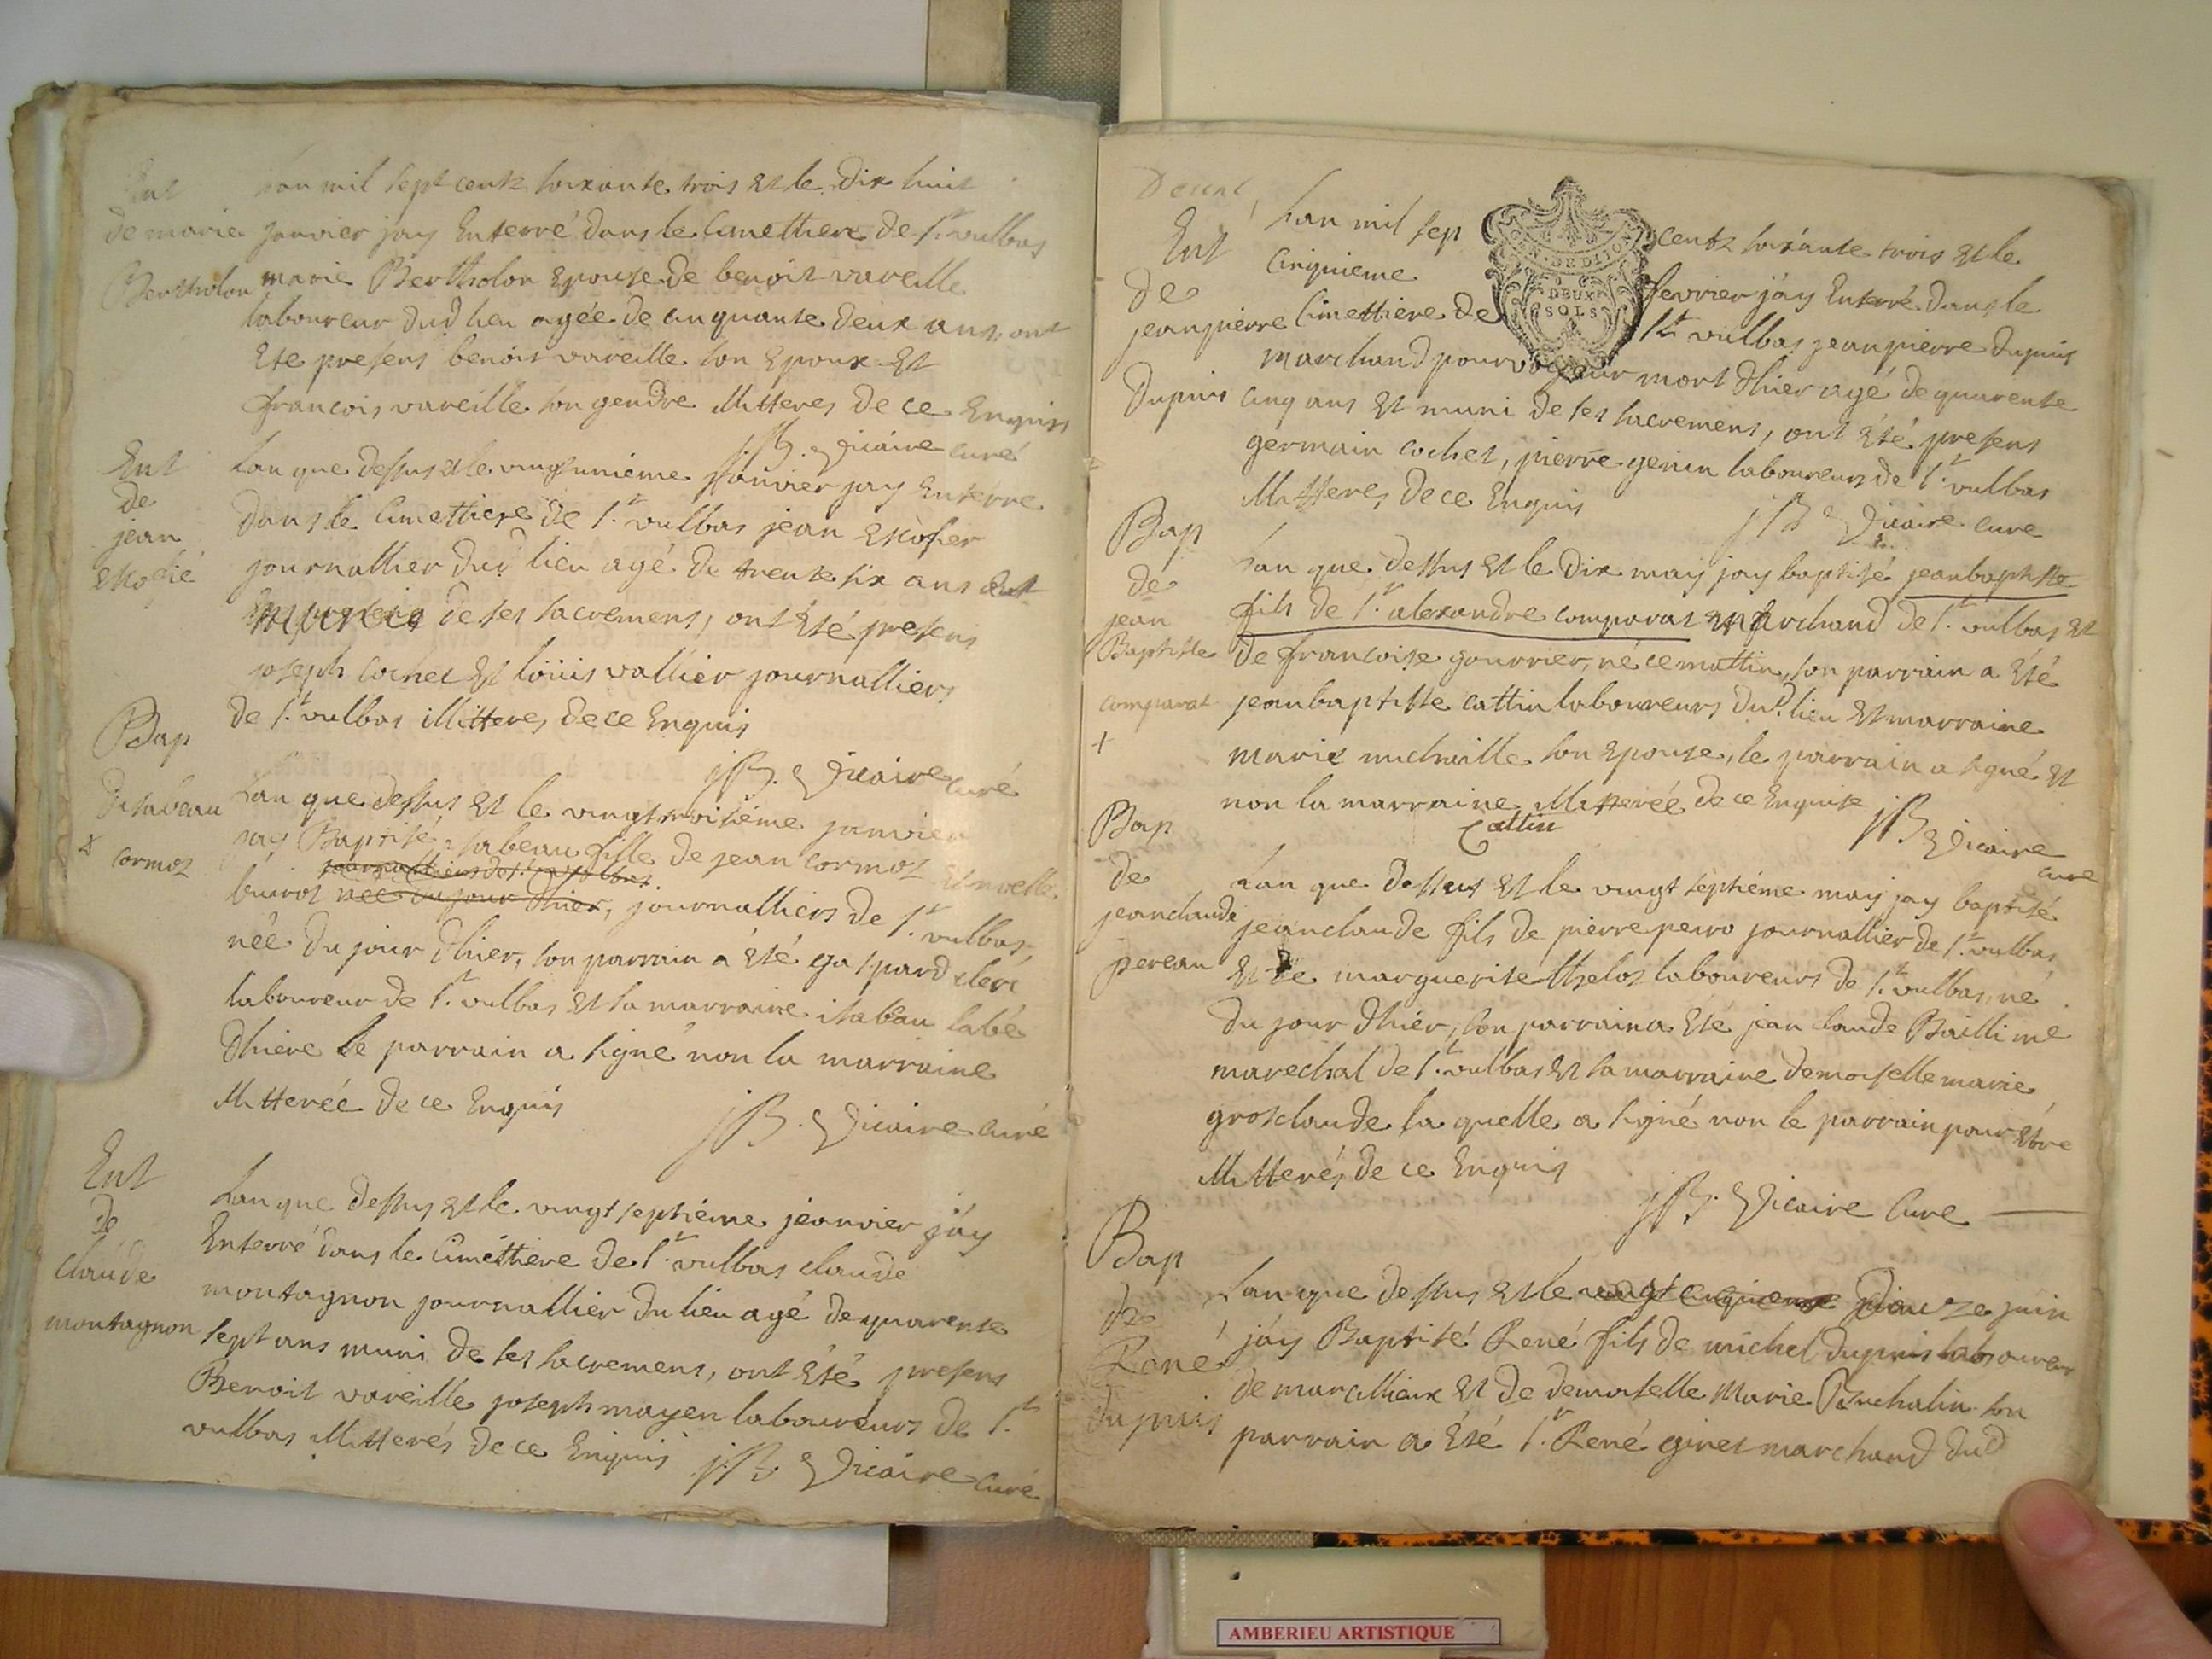 Ent
de marie
Bertholon
lan mil sept centz soixante trois et le dix huit
janvier jay Enterré dans le Cimettiere de st. vulbas
marie Bertholon Epouse de benoit vareille
laboureur dud lieu agée de cinquante deux ans, ont
Ete presens benoit vareille son Epoux et
francois vareille son gendre illitteres de ce Enquis
jB. Vicaire curé
Ent
de
jean
Escofié
Lan que dessus et le vingtunieme janvier jay Enterre
dans le Cimettiere de st. vulbas jean Escofier
journallier dud lieu agé de trente six ans
de ses sacremens, ont Eté presens
joseph cochet Et loüis vallier journalliers
de st. vulbas illitteres de ce Enquis
jB. Vicaire curé
Bap
disabeau
cormot
Lan que dessus et le vingt troisiéme janvier
jay Baptisé isabeau fille de jean cormot
journalliers de st. vulbas
buirot née du jour dhier, journalliers de st. vulbas,
née du jour dhier, son parrain a été gaspard clerc
laboureur de st. vulbas Et sa marraine isabeau labé
dhiere le parrain a signé non la marraine
illitterée de ce Enquis
jB. Vicaire curé
Ent
de
claude
montagnon
Lan que dessus et le vingt septiéme jeanvier j'ay
Enterré dans le Cimettiere de st. vulbas claude
montagnon journallier du lieu agé de quarente
sept ans muni de ses sacremens, ont Eté presens
Benoit vareille joseph mayen laboureurs de st.
vulbas illitterés de ce Enquis
jB. Vicaire curé
Ent
de
jeanpierre
Dupuis
GEN. DE DIJON
DEUX
SOLS
Lan mil sep centz soixante trois et le
cinquieme fevrier j'ay Enterré dans le
Cimettiere de st. vulbas jeanpierre dupuis
marchand pourvoyeur mort dhier agé de quarente
cinq ans Et muni de ses sacremens, ont Eté presens
germain cochet, pierre genin laboureurs de st. vulbas
illitteres de ce Enquis
jB Vicaire cure
Bap
de
jean
Baptiste
comparat
+
Lan que dessus et le dix may jay baptisé jeanbaptiste
fils de sr. alexandre comparat marchand de st. vulbas et
de francoise gourrier, né ce mattin, son parrain a Eté
jeanbaptiste cattin laboureurs dud. lieu Et marraine
marie michaille son Epouse, le parrain a signé et
non la marraine illitterée de ce Enquise
Cattin
jB Vicaire
cure
Bap
de
jeanclaude
pereau
Lan que dessus et le vingt septiéme may jay baptisé
jeanclaude fils de pierre peiro journallier de st. vulbas
Et de marguerite thelot laboureurs de st. vulbas, né
du jour dhier, son parrain a Eté jean claude Bailli me
marechal de st. vulbas et sa marraine demoiselle marie
grosclaude la quelle a signé non le parrain pour Etre
illitterés de ce Enquis
jB. Vicaire Cure
Bap
de
René
dupuis
Lan que dessus et le douze juin
j'ay Baptisé René fils de michel dupuis laboureur
de marcillieux et de demoiselle Marie son
parrain a Eté sr. René ginet marchand dud
AMBERIEU ARTISTIQUE